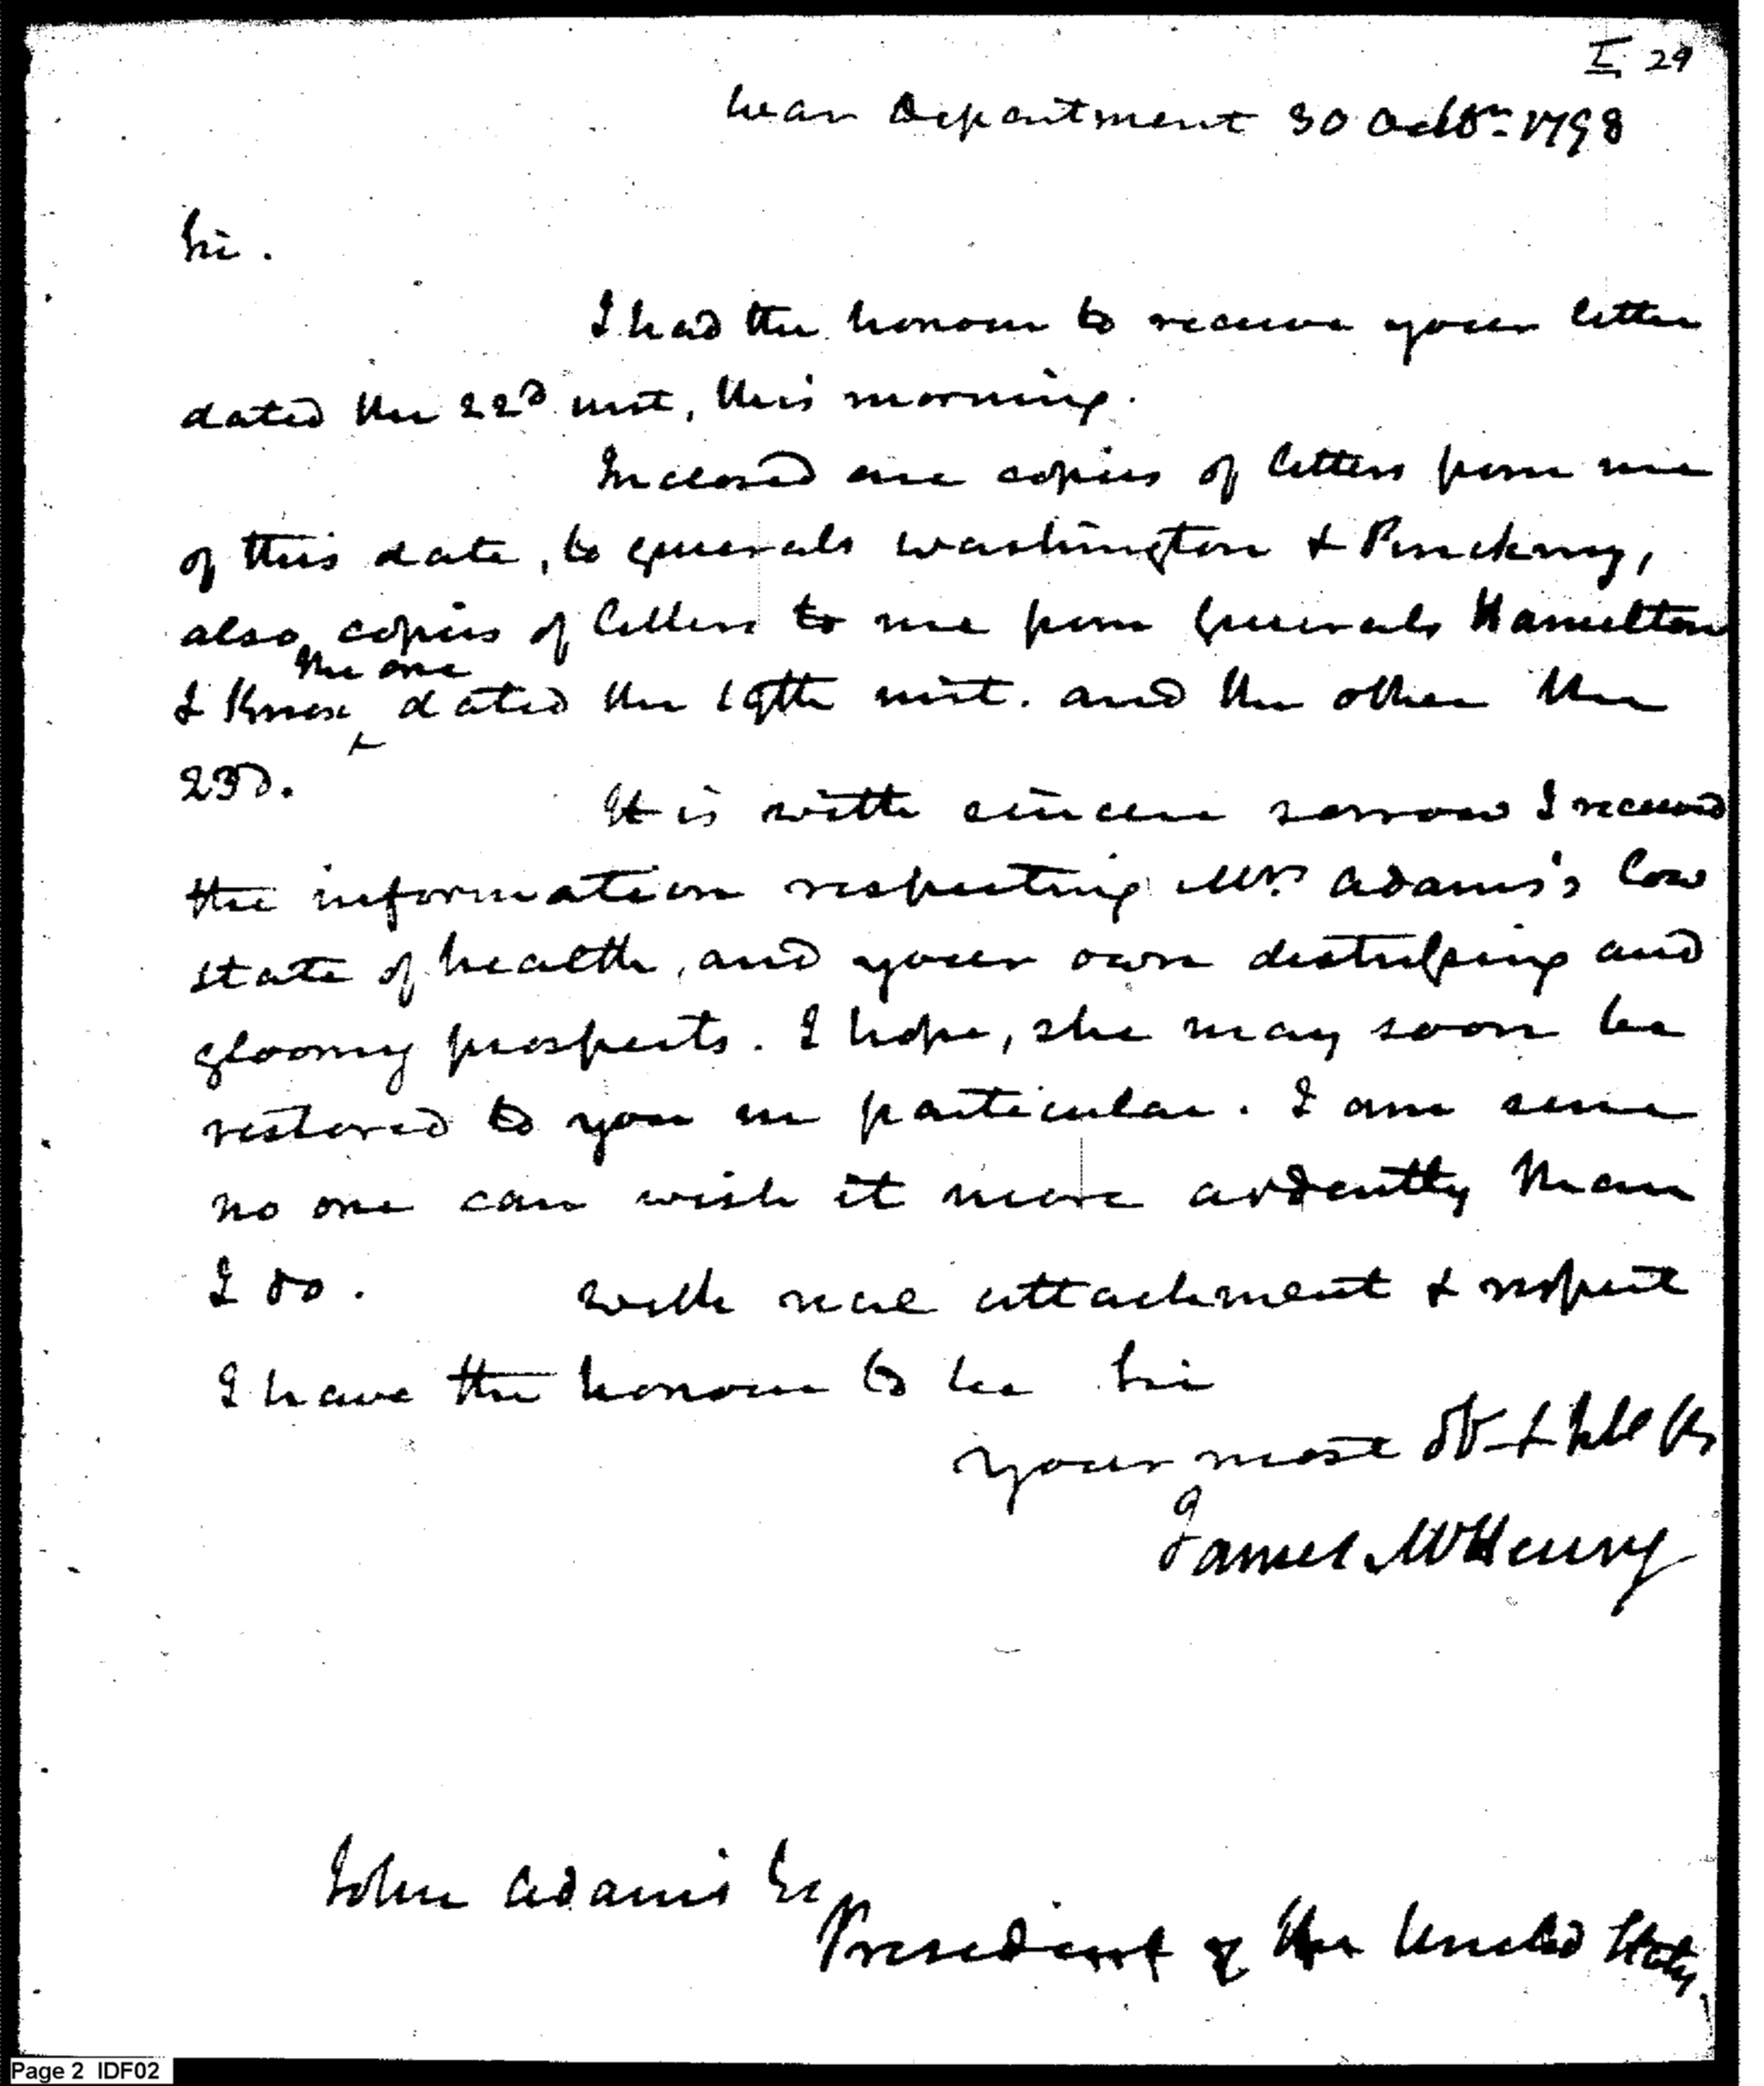 I 29
War Department 30 Octbr. 1798
Sir.
I had the honour to receive your letter
dated the 22d inst, this morning.
Inclosed are copies of letters from me
of this date, to generals Washington & Pinckney,
also copies of letters to me from Generals Hamilton
the one
& Knox dated the 19th inst. and the other the
23d.
It is with sincere sorrow I received
the information respecting Mrs. Adams's low
state of health, and your own distressing and
gloomy prospects. I hope, she may soon be
restored to you in particular. I am sure
no one can wish it more ardently than
I do. with real attachment & respect
I have the honour to be Sir
your most obt & hble
James McHenry
John Adams Es
President of the United States.
Page 2 IDF02